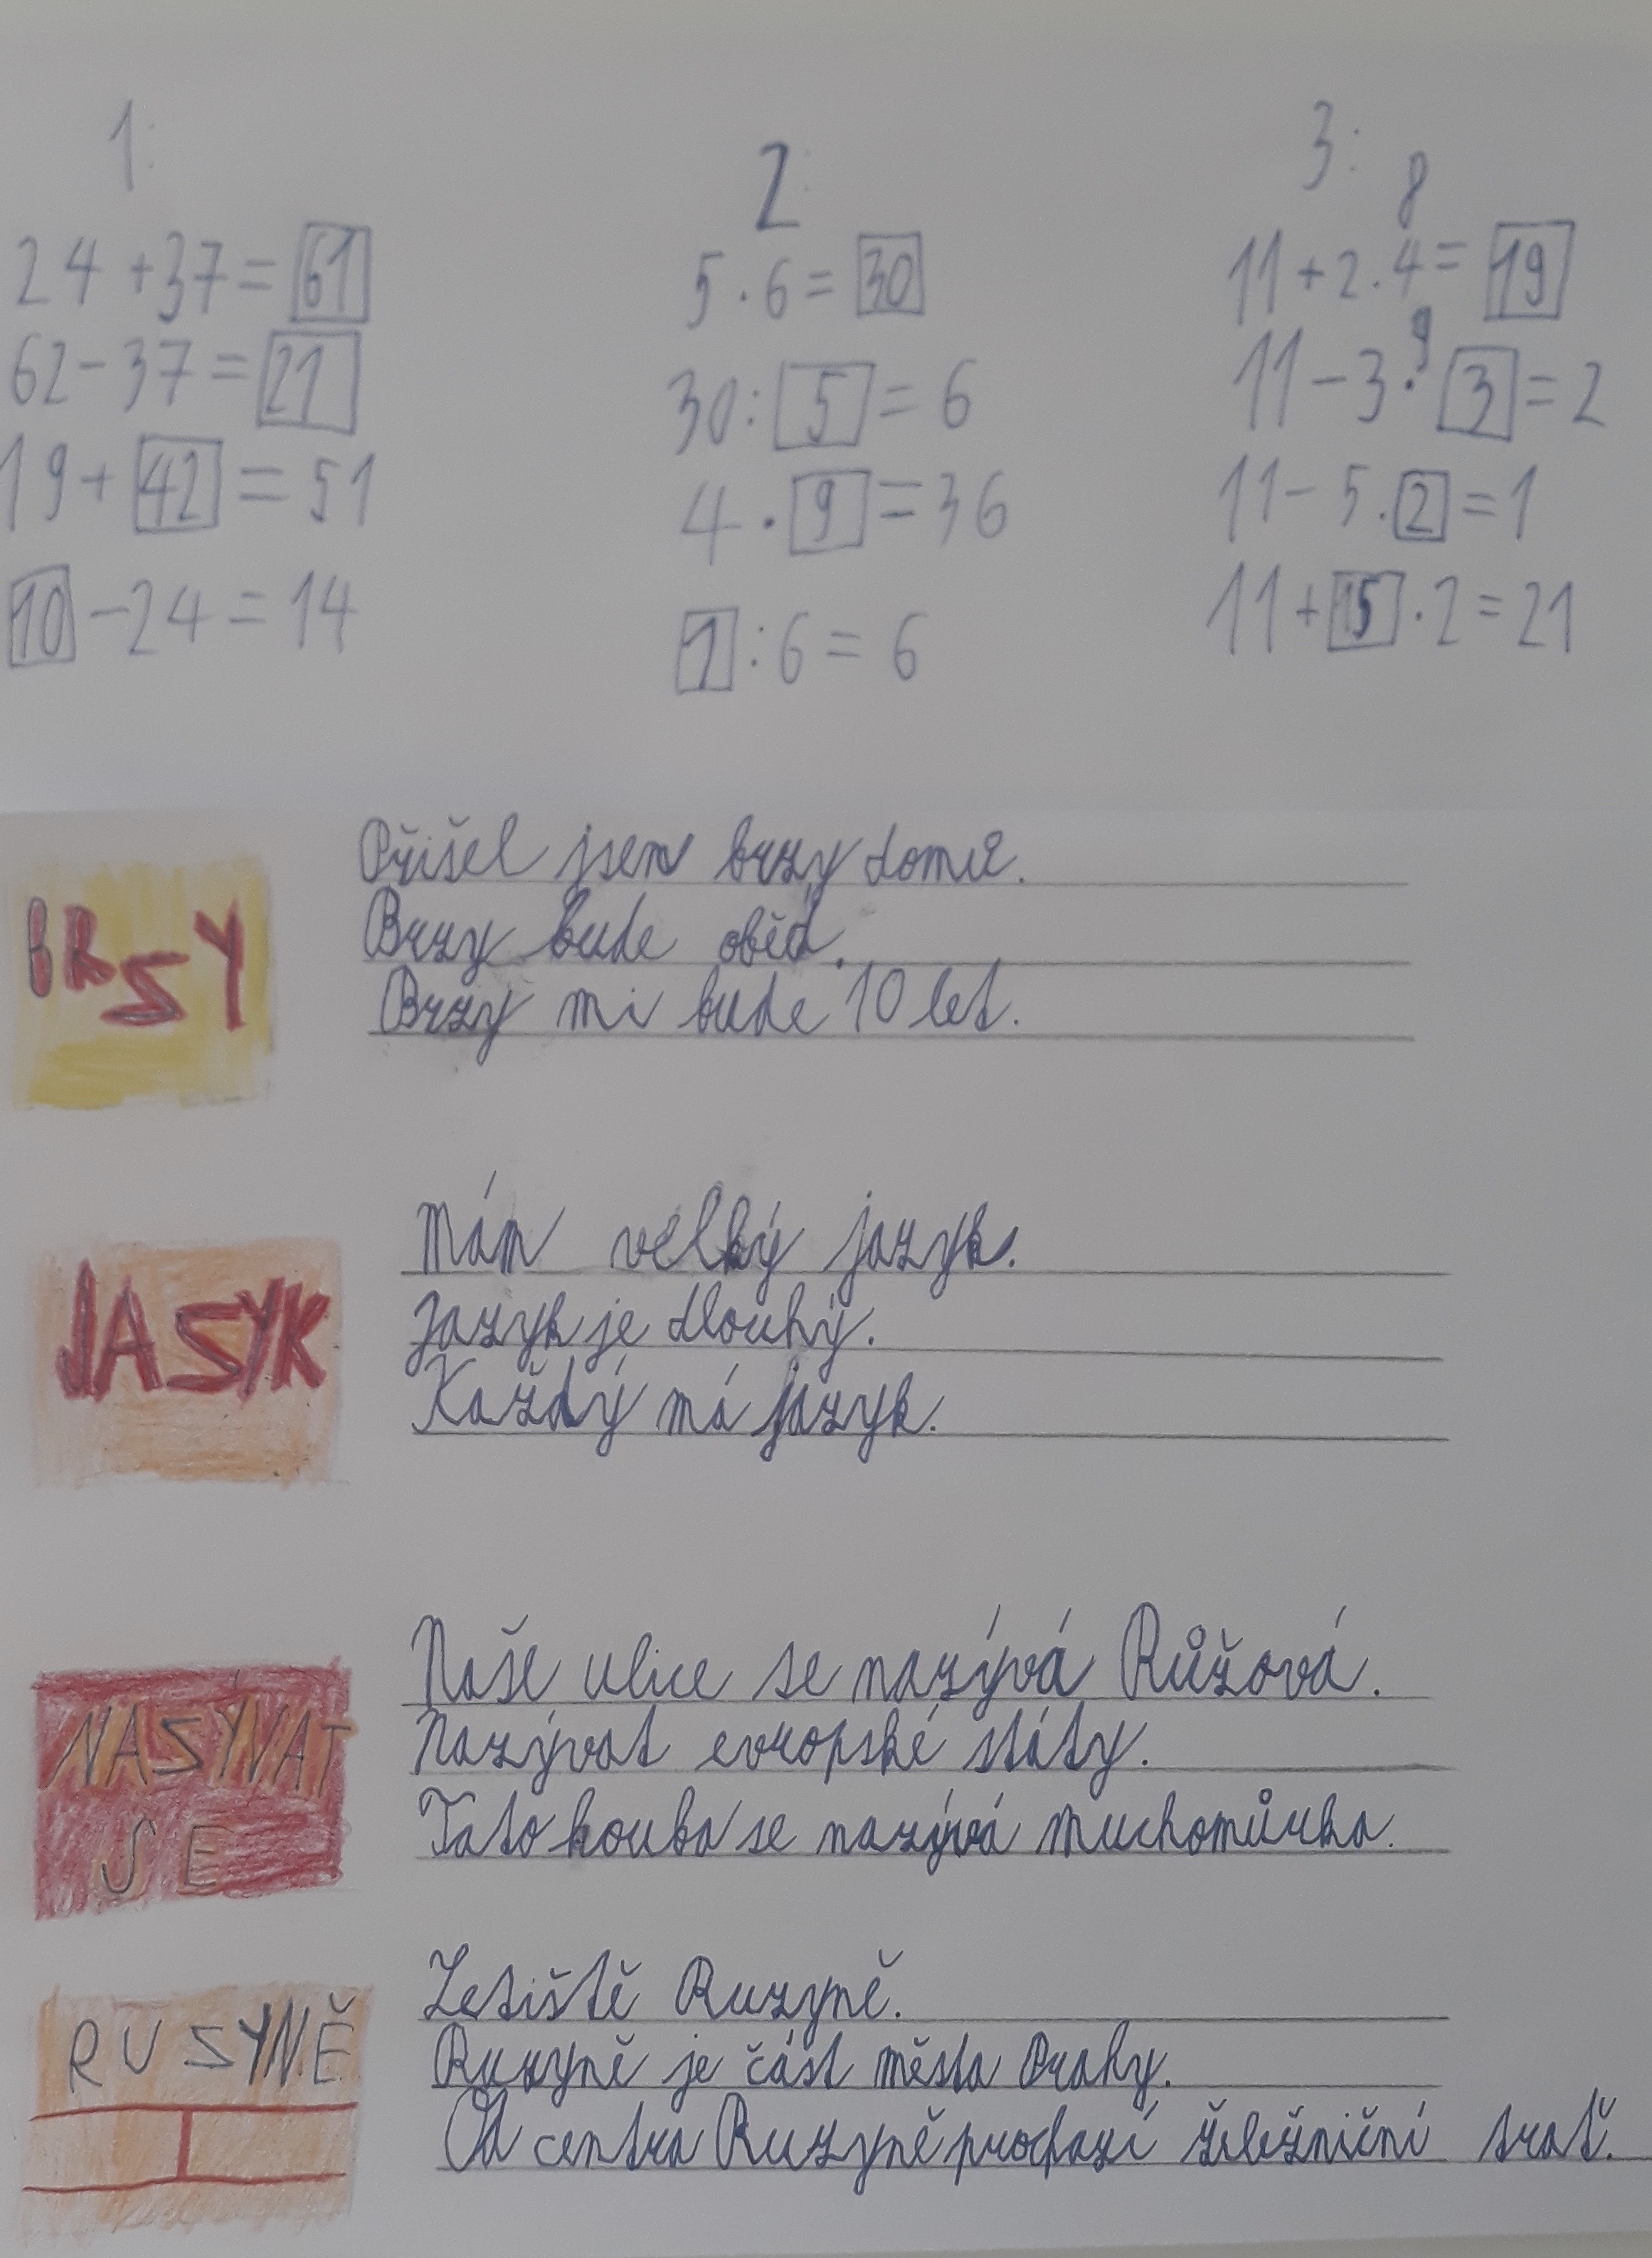 1:
24 + 37 = 61
62 - 37 = 21
19 + 42 = 51
10 - 24 = 14
2:
5 · 6 = 30
30 : 5 = 6
4 · 9 = 36
1 : 6 = 6
3:
8
11 + 2 . 4 = 19
9
11 - 3 · 3 = 2
11 - 5 . 2 = 1
11 + 15 · 2 = 21
BRSY
Přišel jsem brzy domů.
Brzy bude oběd.
Brzy mi bude 10 let.
JASYK
Mám velký jazyk.
Jazyk je dlouhý.
Každý má jazyk.
NASÝVAT
SE
Naše ulice se nazývá Růžová.
Nazývat evropské státy.
Tato houba se nazývá muchomůrka.
RUSYNĚ
Letiště Ruzyně.
Ruzyně je část města Prahy.
Od centra Ruzyně prochází želežniční trať.